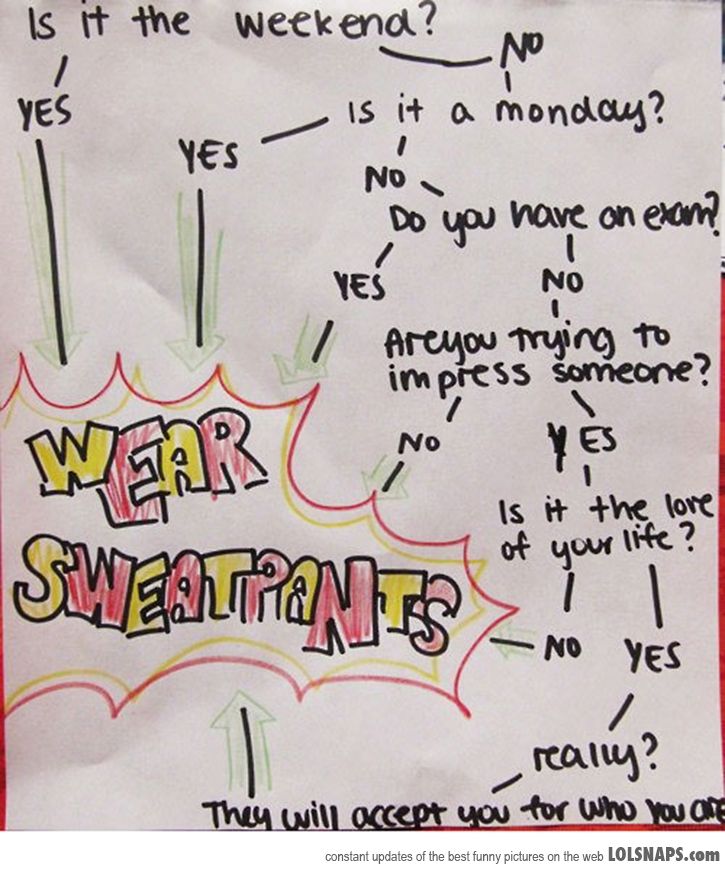 Is it the weekend?
NO
YES
Is it a monday?
YES
NO
Do you have an exam?
YES
NO
Are you trying to
impress someone?
NO
YES
Is it the love
of your life?
WEAR
SWEATPANTS
NO
YES
really?
They will accept you for who you are
constant updates of the best funny pictures on the web LOLSNAPS.com